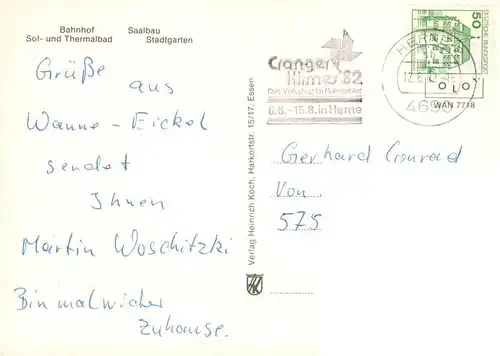 Bahnhof Saalbau
Sol- und Thermalbad Stadtgarten
Grüße aus
Wanne-Eickel
sendet
Ihnen
Martin Woschitzki
Bin mal wieder
Zuhause.
Verlag Heinrich Koch, Harkortstr. 15/17, Essen
Cranger
Kirmes 82
Das Volksfest im Ruhrgebiet
6.8.–15.8. in Herne
HERNE
4690
50
DEUTSCHE BUNDESPOST
WAN 7718
Gerhard Conrad
Von
575